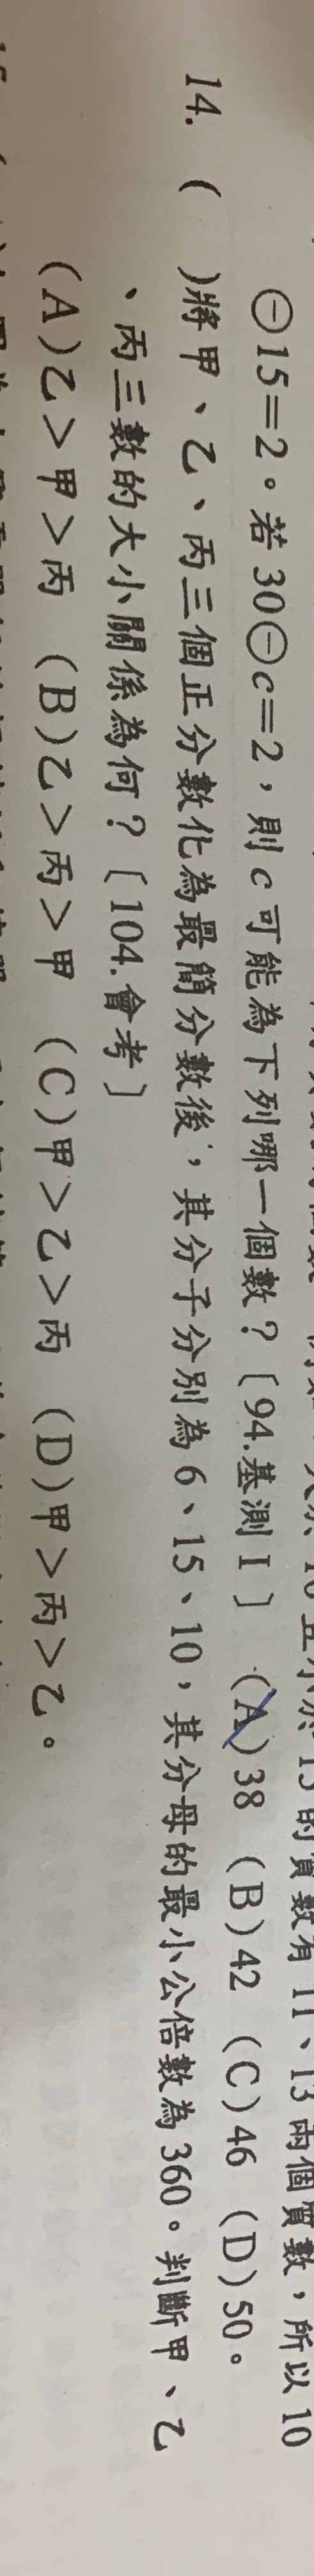 10且小於15的質數有11、13兩個質數，所以10
⊖15＝2。若30⊖c＝2，則c可能為下列哪一個數？〔94.基測Ⅰ〕 (A)38 (B)42 (C)46 (D)50。
14. ( )將甲、乙、丙三個正分數化為最簡分數後，其分子分別為6、15、10，其分母的最小公倍數為360。判斷甲、乙
、丙三數的大小關係為何？〔104.會考〕
(A)乙＞甲＞丙 (B)乙＞丙＞甲 (C)甲＞乙＞丙 (D)甲＞丙＞乙。